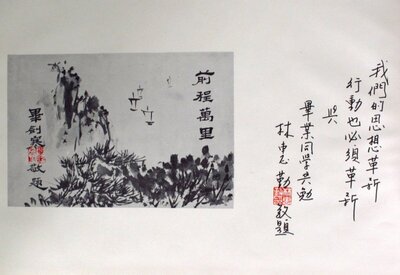 我們的思想革新
行動也必須革新
與
畢業同學共勉
林 勤敬題
前程萬里
畢 敬題